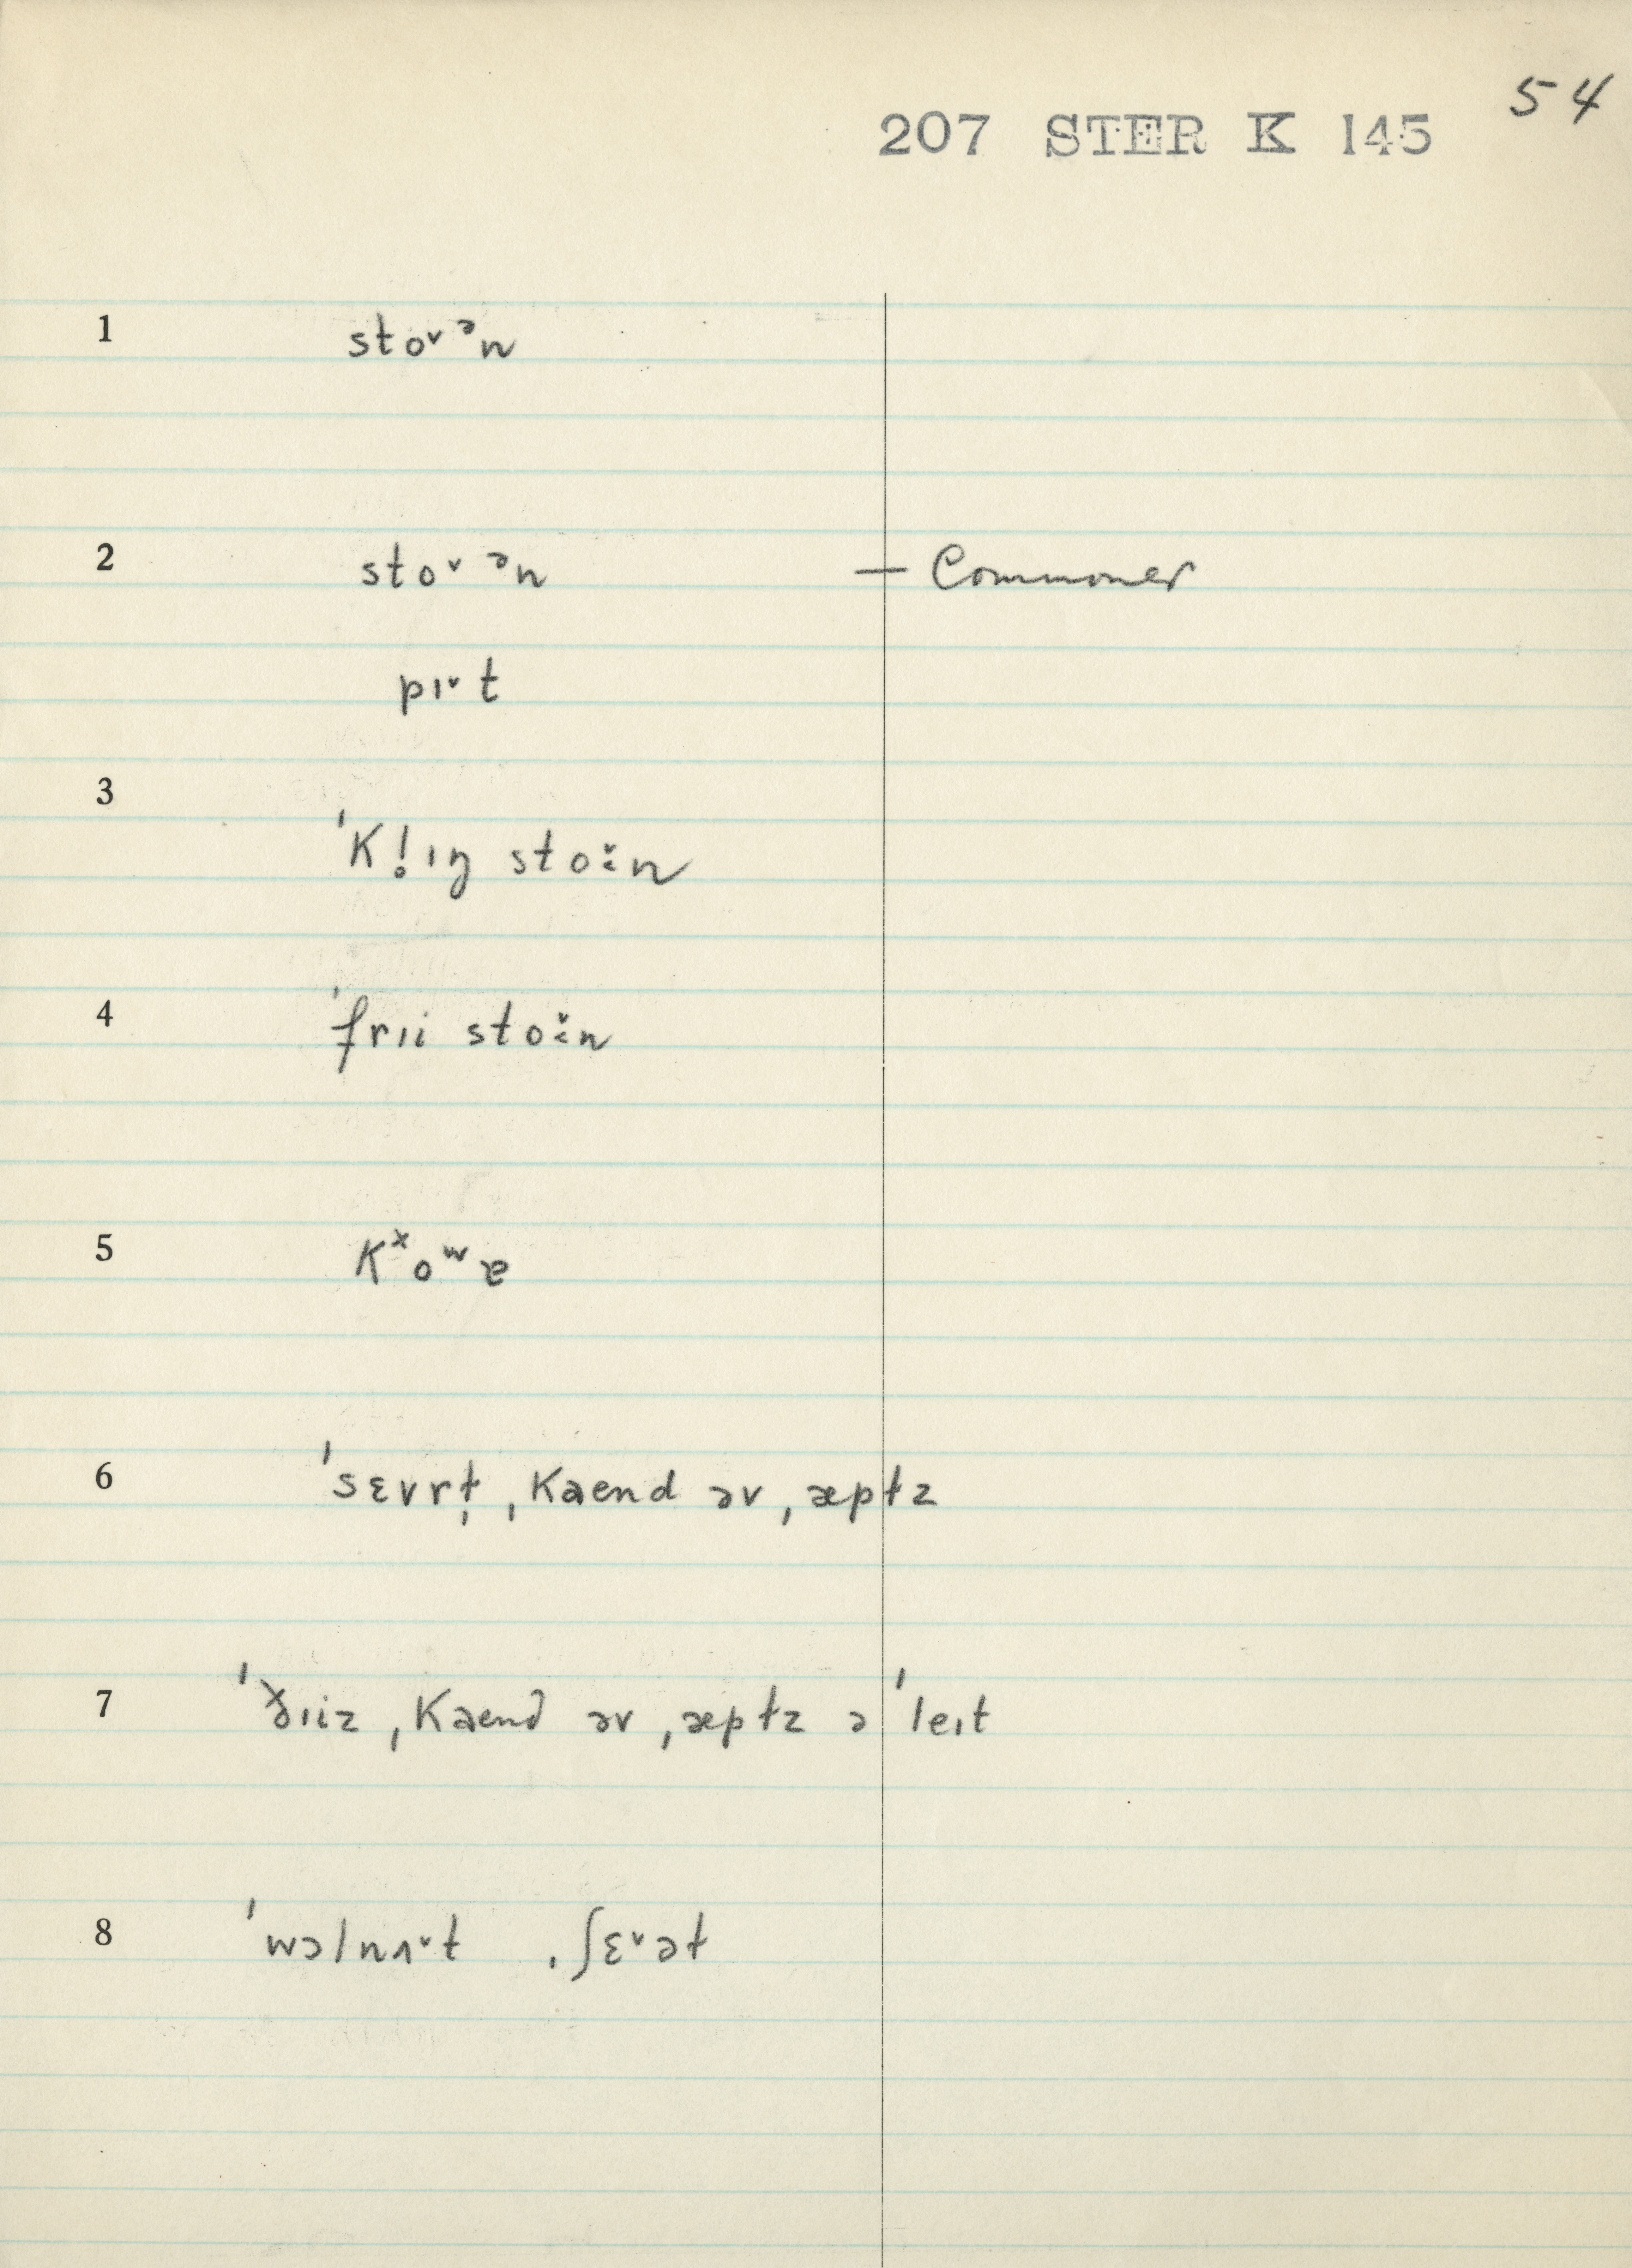 54
207 STER K 145
1 stoˇᵊn
2 stoˇᵊn — Commoner
pɪˇt
3 ˈK!ɪŋ stoˇ:n
4 ˈfrɪi stoˇ:n
5 Kˣoʷɐ
6 ˈsɛvrt̩ ˌKaend əv ˌæptz
7 ˈðɪiz ˌKaend əv ˌæptz əˈleɪt
8 ˈwɔlnʌˇt ˌʃɛˇət